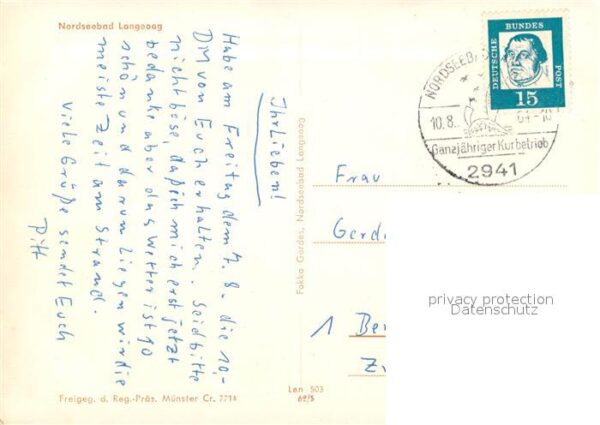 Nordseebad Langeoog
Ihr Lieben!
Habe am Freitag dem 7.8. die 10,-
DM von Euch erhalten. Seid bitte
nicht böse, daß ich mich erst jetzt
bedanke aber das Wetter ist so
schön und darum liegen wir die
meiste Zeit am Strand.
Viele Grüße sendet Euch
Pitt
Fokko Gerdes, Nordseebad Langeoog
Freigeg. d. Reg.-Präs. Münster Cr. 7714
Len 503
62/5
DEUTSCHE
BUNDES
POST
15
NORDSEEB
10.8.
64-10
Ganzjähriger Kurbetrieb
2941
Frau
Gerd
1 Ber
privacy protection
Datenschutz